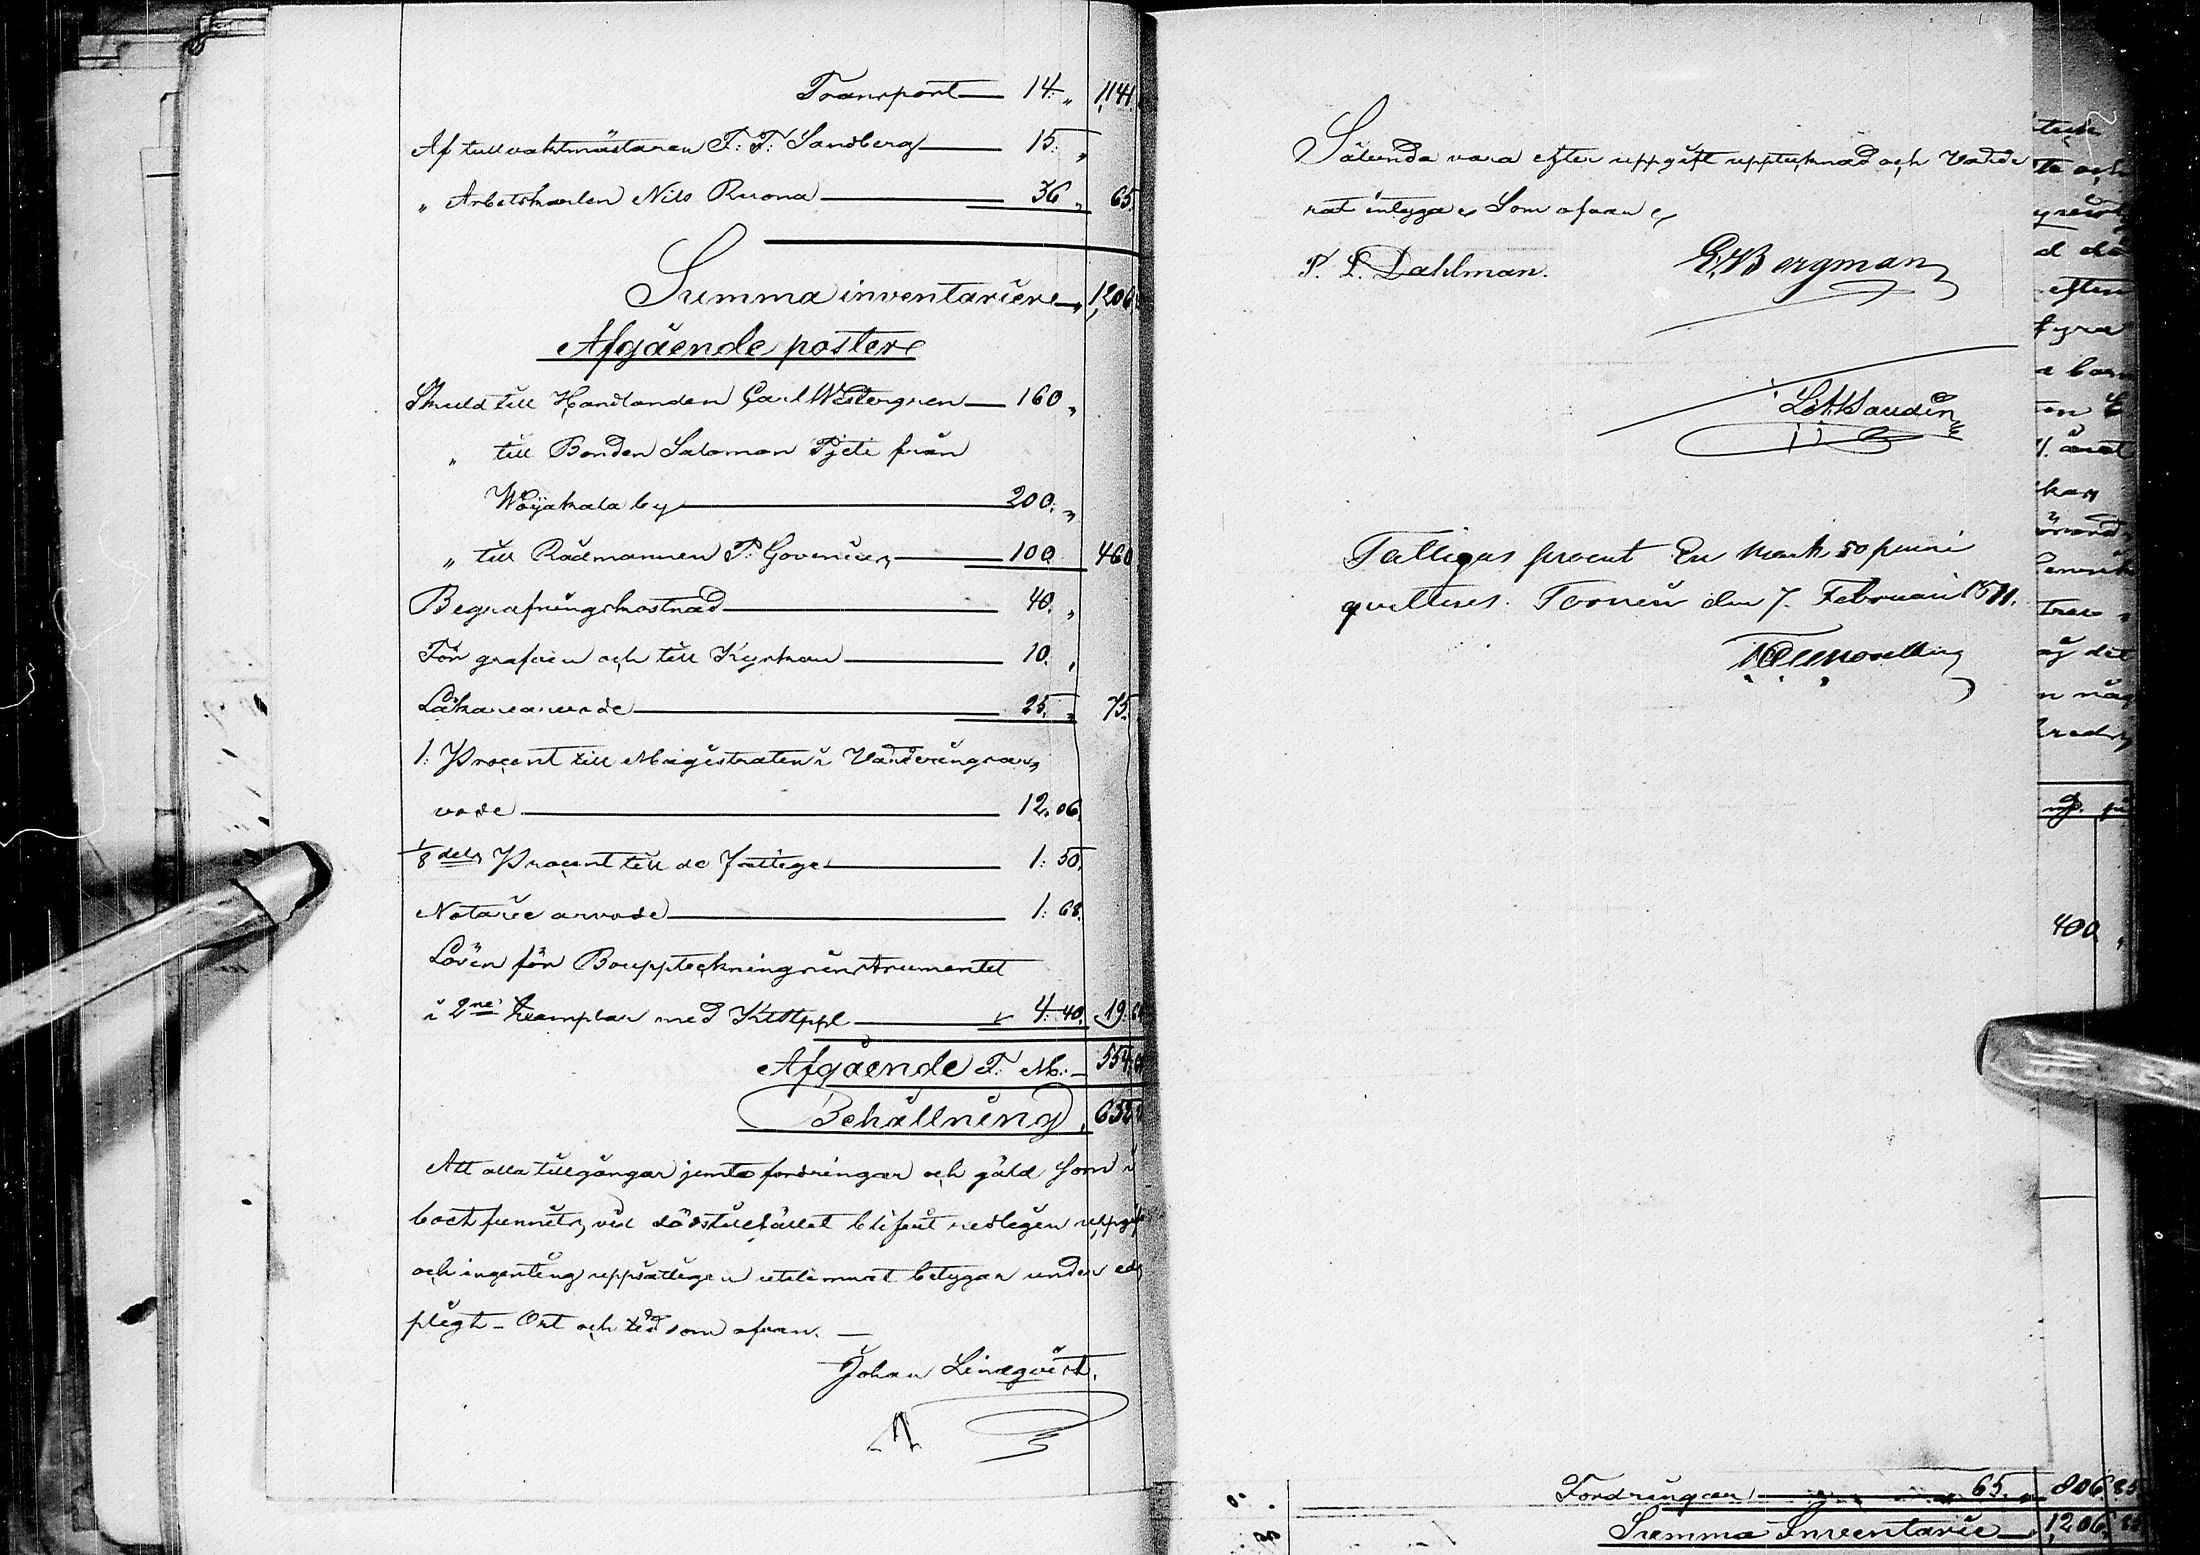 Transport — 14: „ 1,141.
Af tullvaktmästaren F: F: Sandberg — 15: „
„ Arbetskarlen Nils Ruona — 36 „ 65.
Summa inventarier — 1,206.
Afgående poster
Skuld till Handlanden Carl Westergren — 160 „
„ till Bonden Salomon Pjeti från
Wojakala by — 200: „
„ till Rådmannen P: Govenius — 100 460
Begrafningskostnad — 40. „
För grafven och till Kyrkan — 10. „
Läkarearvode — 25. „ 75.
1. Procent till Magistraten i Värderingsar
vode — 12. 06.
1/8 dels Procent till de fattige — 1: 50.
Notarie arvode — 1: 68.
Lösen för Bouppteckningsinstrumentet
i 2ne Exemplar med — 4: 40. 19. 64
Afgående F: M: — 554.
Behållning, 652
Att alla tillgångar jemte fordringar och gäld som i
boet funnits, vid dödstillfället blifvit redligen uppgif
och ingenting uppsåtligen utelemnat betygar under eds
pligt – Ort och tid som ofvan. —
Johan Lindqvist.
Sålunda vara efter uppgift upptecknad och värde
rat intyga. Som ofvan
P. L. Dahlman. E. Bergman
Fattigas procent En Mark 50 penni
qvitteras. Torneå den 7. Februari
400 „
Fordringar — 65. „ 806. 85
Summa Inventarie — 1,206.